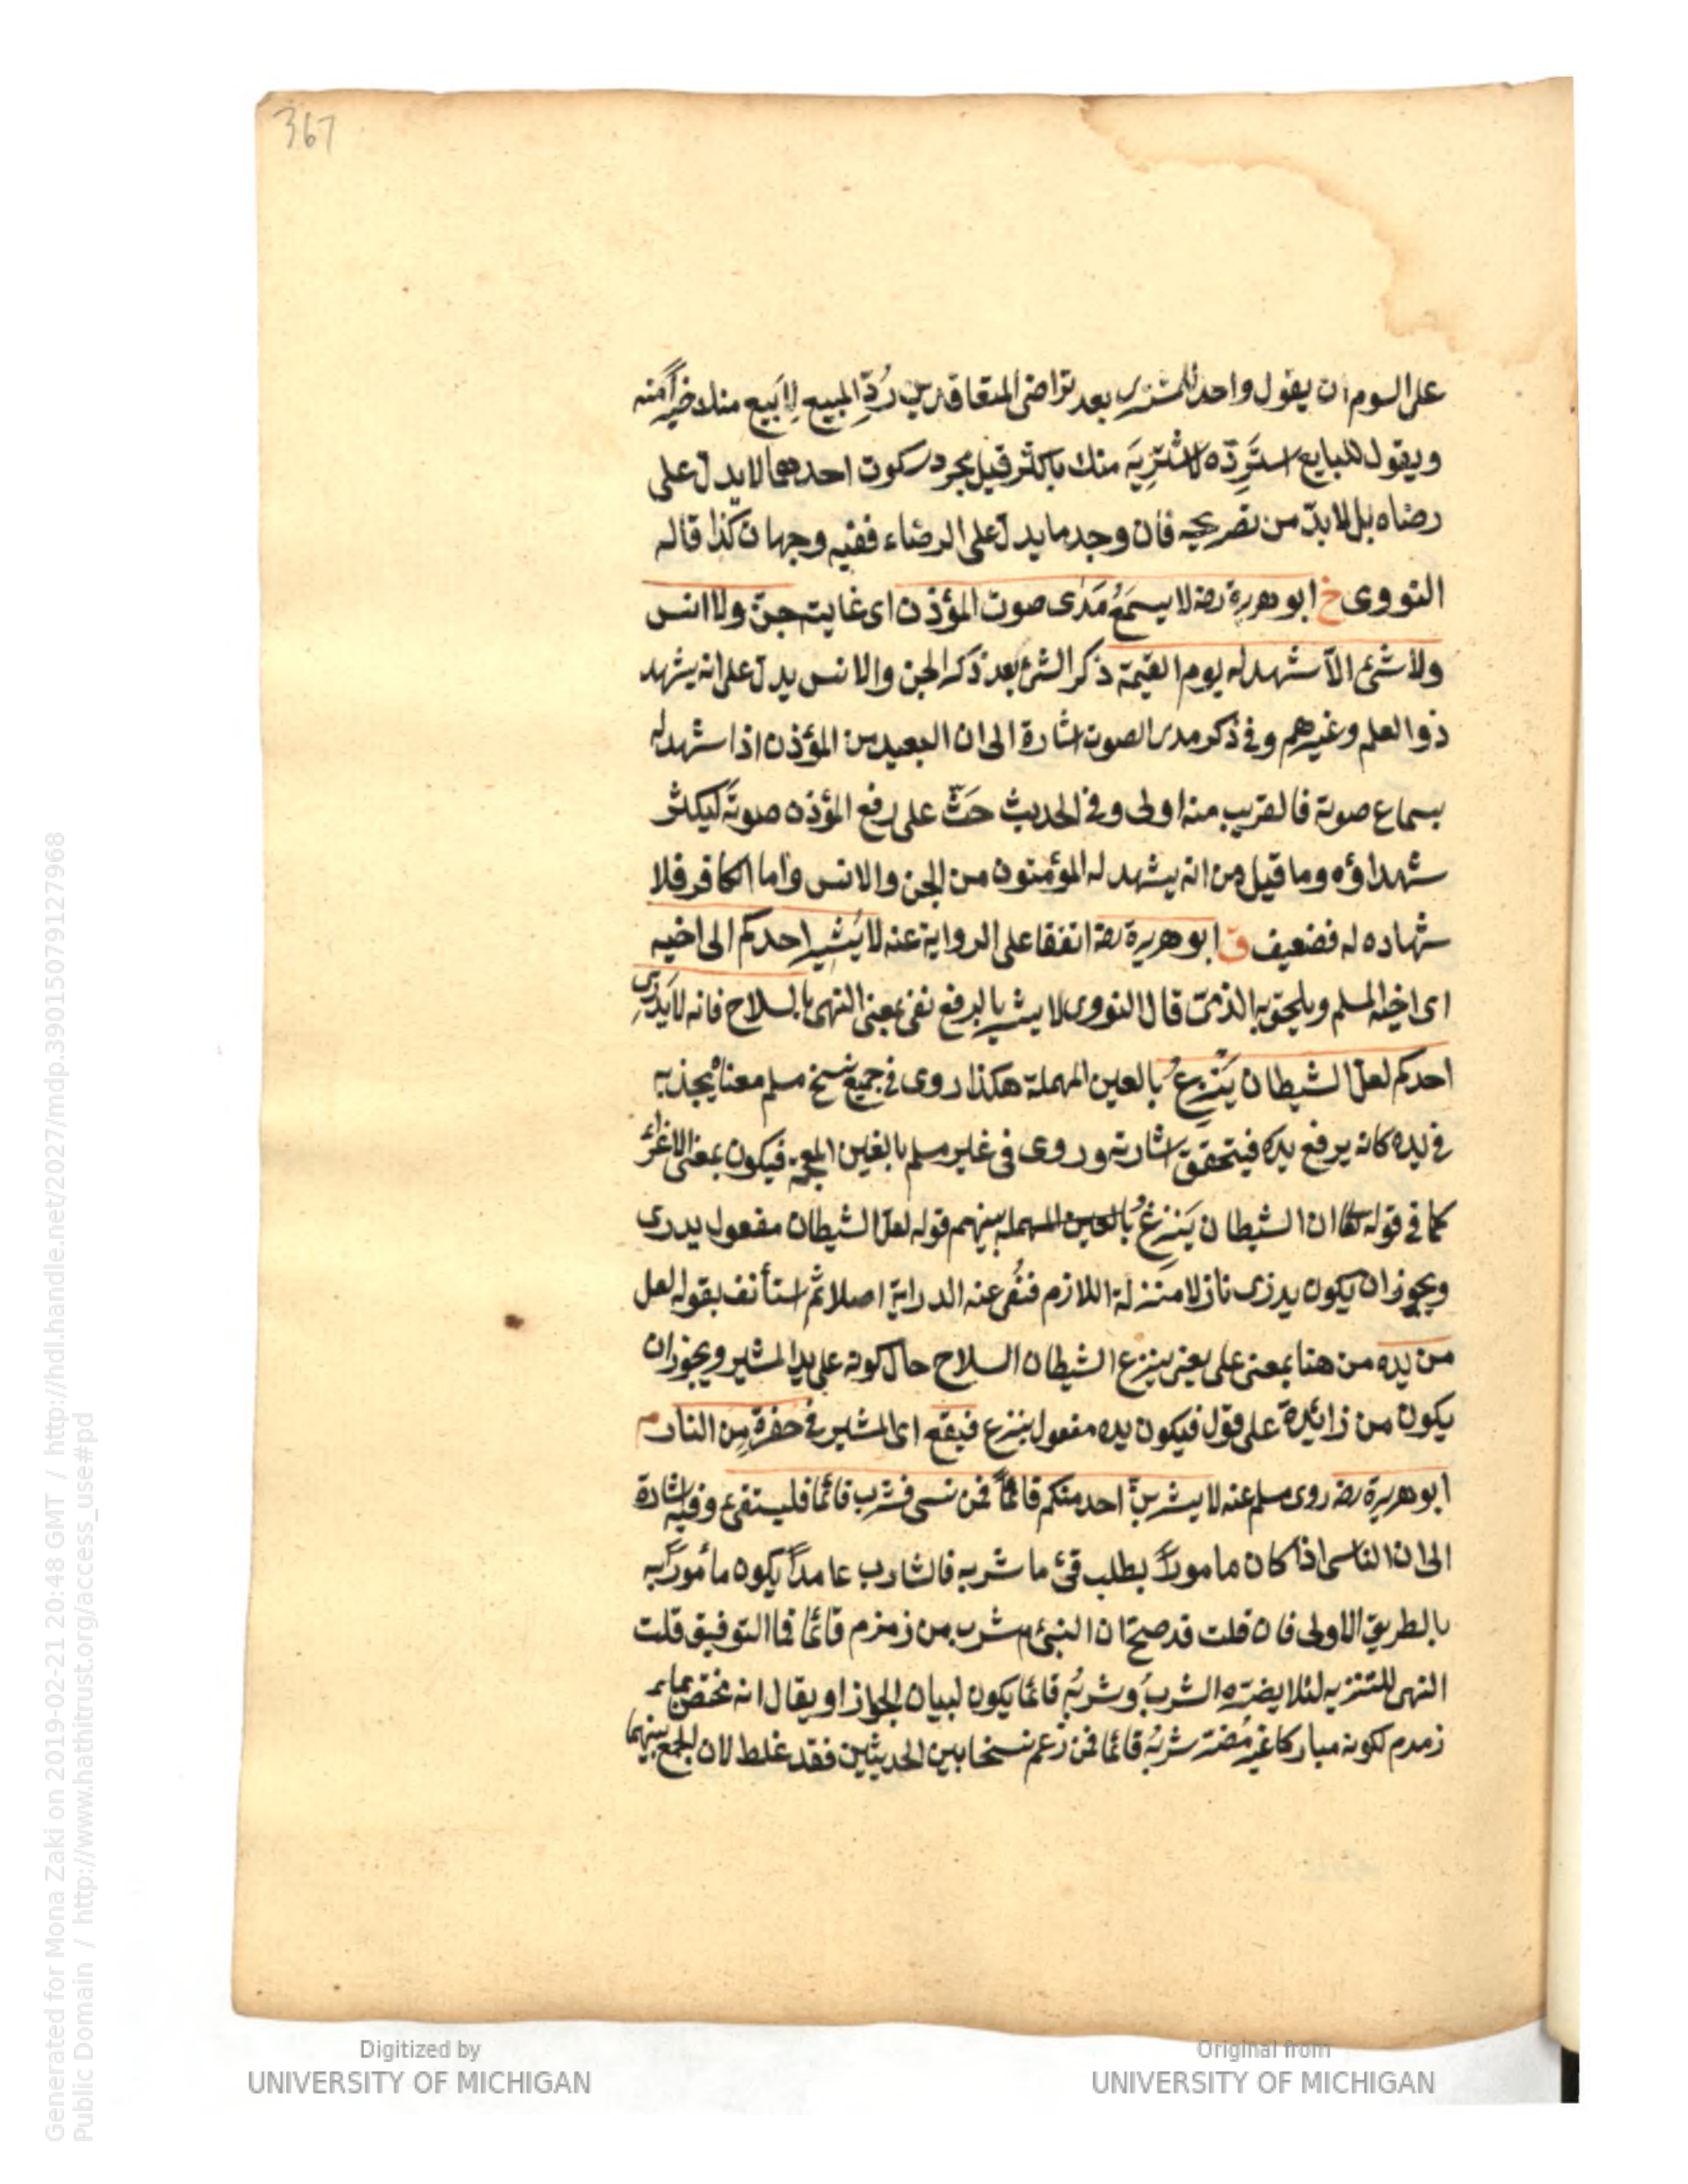 367
على السوم ان يقول واحد للمشترى بعد تراضى المتعاقدين رُدِّ المبيع لِاَبيع منك خيراً منه
ويقول للبايع استَرِدّه لاشتَرِيَه منك باكثر قيل مجرد سكوت احدهما لا يدل على
رضاه بل لابدّ من تصريحه فان وجد ما يدل على الرضاء ففيه وجهان كذا قاله
النووى خ ابو هريرة رضه لا يسمَعُ مَدَى صوت المؤذن اى غايته جن ولا انس
ولا شئ الّا شهد له يوم القيمة ذكر الشئ بعد ذكر الجن والانس يدل على انه يشهد
ذوا العلم وغيرهم وفى ذكر مدى الصوت اشارة الى ان البعيد من المؤذن اذا شهد له
بسماع صوته فالقريب منه اولى وفى الحديث حَثّ على رفع المؤذن صوتَه ليكثر
شهداؤه وما قيل من انه يشهد له المؤمنون من الجن والانس واما الكافر فلا
شهاده له فضعيف ق ابو هريرة رضه اتفقا على الرواية عنه لا يُشير احدكم الى اخيه
اى اخيه المسلم ويلحق به الذمّى قال النووى لا يشير بالرفع نفى بمعنى النهى بالسلاح فانه لا يَدْرِى
احدكم لعلّ الشيطان يَنْزِعُ بالعين المهملة هكذا روى فى جميع نسخ مسلم معناه يجذبه
فى يده كانه يرفع يده فيتحقق اشارته وروى فى غير مسلم بالغين المعجمة فيكون بمعنى الاغراء
كما فى قوله تعا ان الشيطان يَنْزِغُ بالعين المهمله بينهم قوله لعل الشيطان مفعول يدرى
ويجوز ان يكون يدرى نازلا منزلة اللازم فنُفى عنه الدراية اصلا ثم استأنف بقوله لعل
من يده من هنا بمعنى على يعنى ينزع الشيطان السلاح حال كونه على يد المشير ويجوز ان
يكون من زائدة على قول فيكون يده مفعول ينزع فيقع اى المشير فى حفرة مِن النار م
ابو هريرة رضه روى مسلم عنه لا يشربنّ احد منكم قائماً فمن نسى فشرب قائما فليستقئ وفيه اشارة
الى ان الناسى اذا كان ماموراً بطلب قئ ما شربه فالشارب عامداً يكون ماموراً به
بالطريق الاولى فان قلت قد صحّ ان النبى م شرب من زمزم قائما فما التوفيق قلت
النهى للتنزيه لئلا يضرّه الشربُ وشربُه قائما يكون لبيان الجواز او يقال انه مختص بماء
زمدم لكونه مباركا غير مُضر شربُه قائما فمن زعم نسخا بين الحديثين فقد غلط لان الجمع بينهما
Digitized by
UNIVERSITY OF MICHIGAN
Original from
UNIVERSITY OF MICHIGAN
Generated for Mona Zaki on 2019-02-21 20:48 GMT / http://hdl.handle.net/2027/mdp.39015079127968
Public Domain / http://www.hathitrust.org/access_use#pd